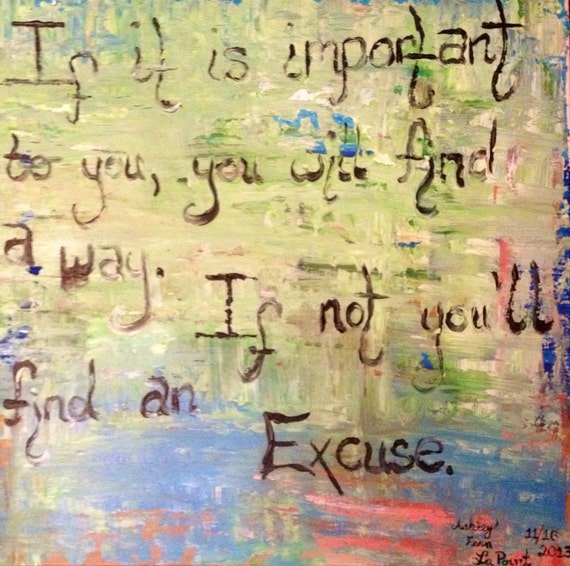 If it is important
to you, you will find
a way. If not you'll
find an
Excuse.
Ashley
Fern 11/16
La Point 2013